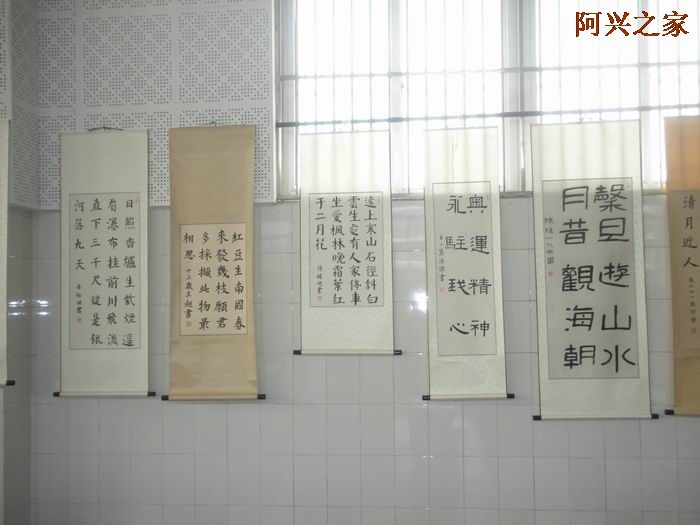 阿兴之家
日照香爐生紫煙遙
看瀑布挂前川飛流
直下三千尺疑是銀
河落九天
紅豆生南國春
來發幾枝願君
多採擷此物最
相思 十三歲王超書
遠上寒山石徑斜白
雲生處有人家停車
坐愛楓林晚霜葉紅
于二月花
奧運精神
永駐我心
旦遊山水
月昔觀海朝
清月近人